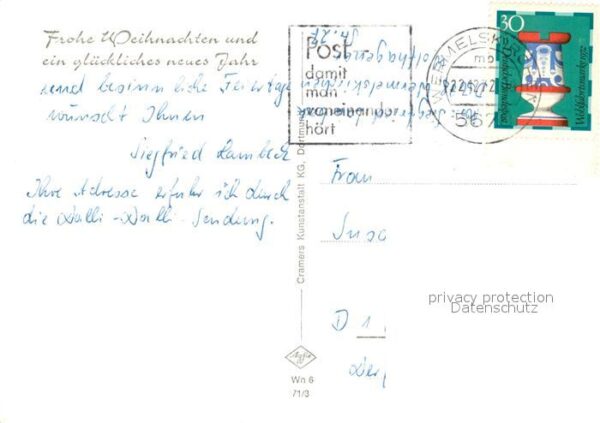 Frohe Weihnachten und
ein glückliches neues Jahr
und besinnliche Feiertage
wünscht Ihnen
Siegfried
Ihre Adresse erfuhr ich durch
die Dalli-Dalli-Sendung.
Cramers Kunstanstalt KG, Dortmund
Agfa
Wn 6
71/3
Post -
damit
man
voneinander
hört
WERMELSKIRCHEN
mb
22.12.72
567
30
Wohlfahrtsmarke 1972
Deutsche Bundespost
Frau
Susa
D 1
Ber
privacy protection
Datenschutz